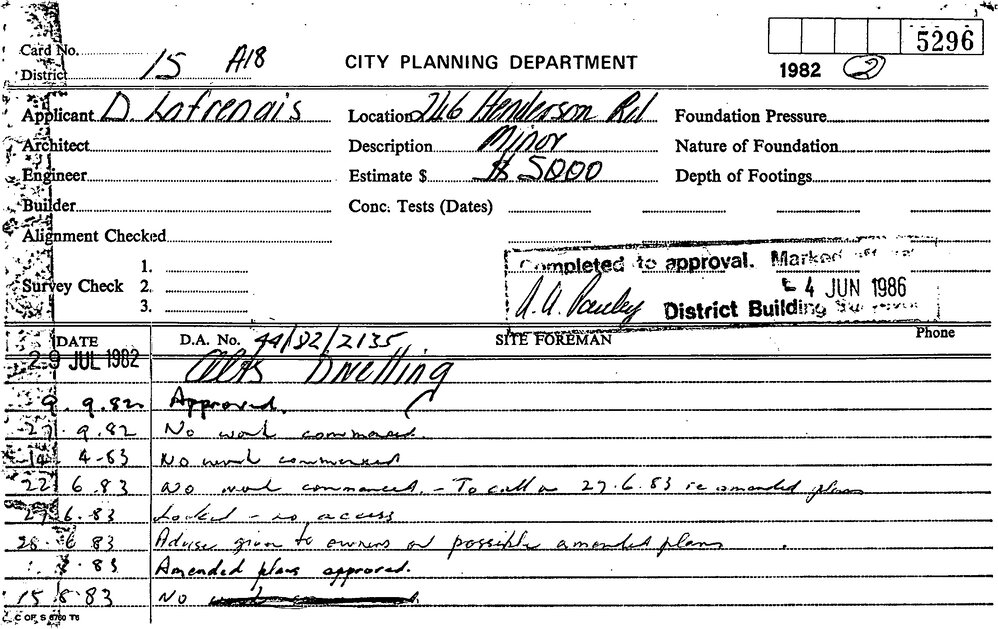 5296
Card No.
15 A18
District
CITY PLANNING DEPARTMENT
1982 2
Applicant D. Lafrenais
Location 246 Henderson Rd
Foundation Pressure
Architect
Description Minor
Nature of Foundation
Engineer
Estimate $ $ 5000
Depth of Footings
Builder
Conc. Tests (Dates)
Alignment Checked
1.
Survey Check 2.
3.
Completed to approval. Marked off
4 JUN 1986
District Building
DATE
D.A. No. 44/82/2135
SITE FOREMAN
Phone
29 JUL 1982 Alts Dwelling
9.9.82 Approved.
9.82 No work commenced.
14 4-83 No work commenced
22 6.83 No work commenced. - To call on 27.6.83 re amended plans
27 6.83 Locked - no access
28. 6 83 Advise given to owners on possible amended plans
83 Amended plans approved.
15 8.83 No
C OF S 6760 T6